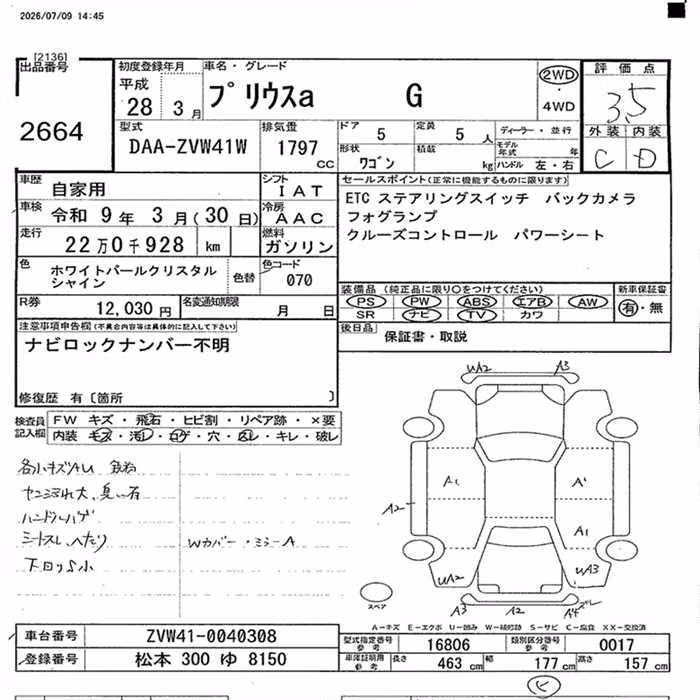 2026/07/09 14:45
[2136]
出品番号
2664
初度登録年月
平成
28 3月
車名・グレード
プリウスa G
2WD
・
4WD
評価点
3.5
外装 内装
C D
型式
DAA-ZVW41W
排気量
1797
cc
ドア 5
定員 5人
形状 ワゴン
積載 kg
ディーラー・並行
モデル年式 年
ハンドル 左・右
車歴
自家用
シフト
IAT
車検 令和 9年 3月(30日)
冷房
AAC
走行 22万0千928 km
燃料
ガソリン
色 ホワイトパールクリスタル
シャイン
色替
色コード
070
R券 12,030円
名変通知期限 月 日
セールスポイント(正常に機能するものに限ります)
ETC ステアリングスイッチ バックカメラ
フォグランプ
クルーズコントロール パワーシート
装備品(純正品に限り○をつけてください)
新車保証書
PS PW ABS エアB AW
SR ナビ TV カワ
有・無
後日品
保証書・取説
注意事項申告欄(不具合内容等は具体的に記入して下さい)
ナビロックナンバー不明
修復歴 有〔箇所 〕
検査員
記入欄
FW キズ・飛石・ヒビ割・リペア跡・×要
内装 キズ・汚レ・コゲ・穴・スレ・キレ・破レ
各小キズAU
ハンドルハゲ
シートスレ、へたり
下回りS小
Wカバー・ミラーA
UA2 A3
A1 A'
A2
A1
UA2 UA3
A3 A2 A4
スペア
A-キズ E-エクボ U-凹み W-補修跡 S-サビ C-腐食 XX-交換済
車台番号 ZVW41-0040308
登録番号 松本 300 ゆ 8150
型式指定番号
参考
16806
類別区分番号
参考
0017
車庫証明用
参考
長さ 463 cm 幅 177 cm 高さ 157 cm